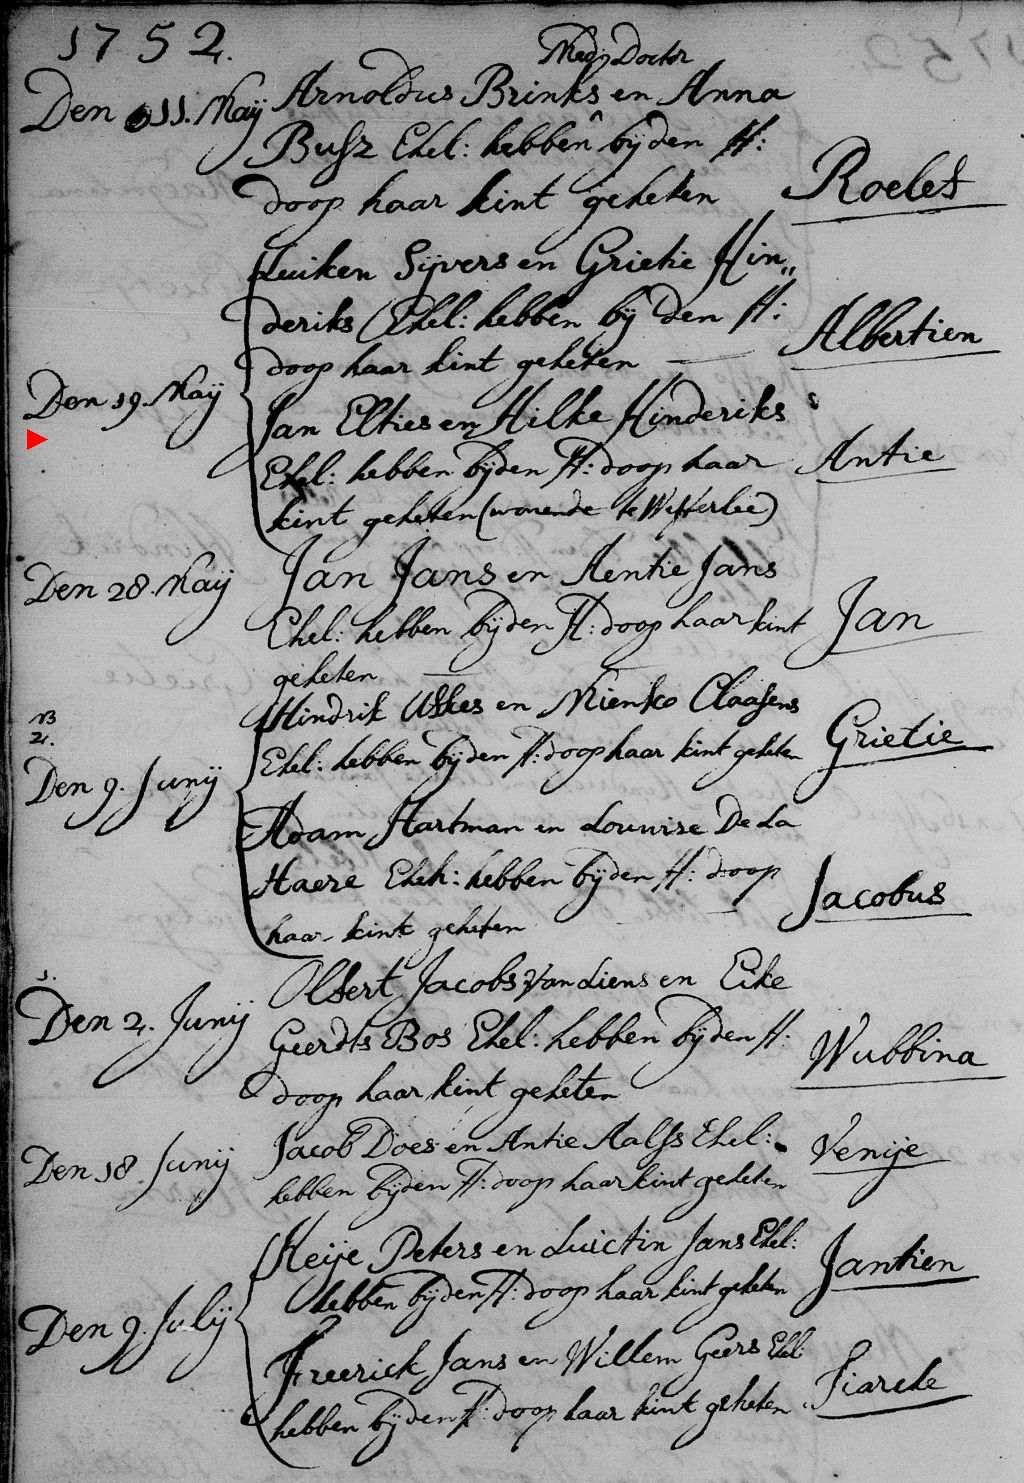 1752.
Med: Doctor
Den 11. Maij Arnoldus Brinks en Anna
Busz Ehel: hebben bij den H:
doop haar kint geheten Roelef
Luiken Sijvers en Grietie Hin„
deriks Ehel: hebben bij den H:
doop haar kint geheten Albertien
Den 19. Maij
Jan Elties en Hilke Hinderiks
Ehel: hebben bij den H: doop haar Antie
kint geheten (wonende te Westerlee)
Den 28. Maij Jan Jans en Aentie Jans
Ehel: hebben bij den H: doop haar kint Jan
geheten
Hindrik Uskes en Nienke Claasens
NB
2.
Ehel: hebben bij den H: doop haar kint geheten Grietie
Den 9. Junij
Adam Hartman en Louwise De La
Haere Eheh: hebben bij den H: doop
haar kint geheten Jacobus
1.
Den 2. Junij Olfert Jacobs van Liens en Eike
Geerdts Bos Ehel: hebben bij den H:
doop haar kint geheten Wubbina
Den 18 Junij Jacob Does en Antie Aalfs Ehel: Venije
hebben bij den H: doop haar kint geheten
Heije Peters en Luictin Jans Ehel:
hebben bij den H: doop haar kint geheten Jantien
Den 9. Julij
Freerick Jans en Willem Geers Ehel:
hebben bij den H: doop haar kint geheten Siarcke